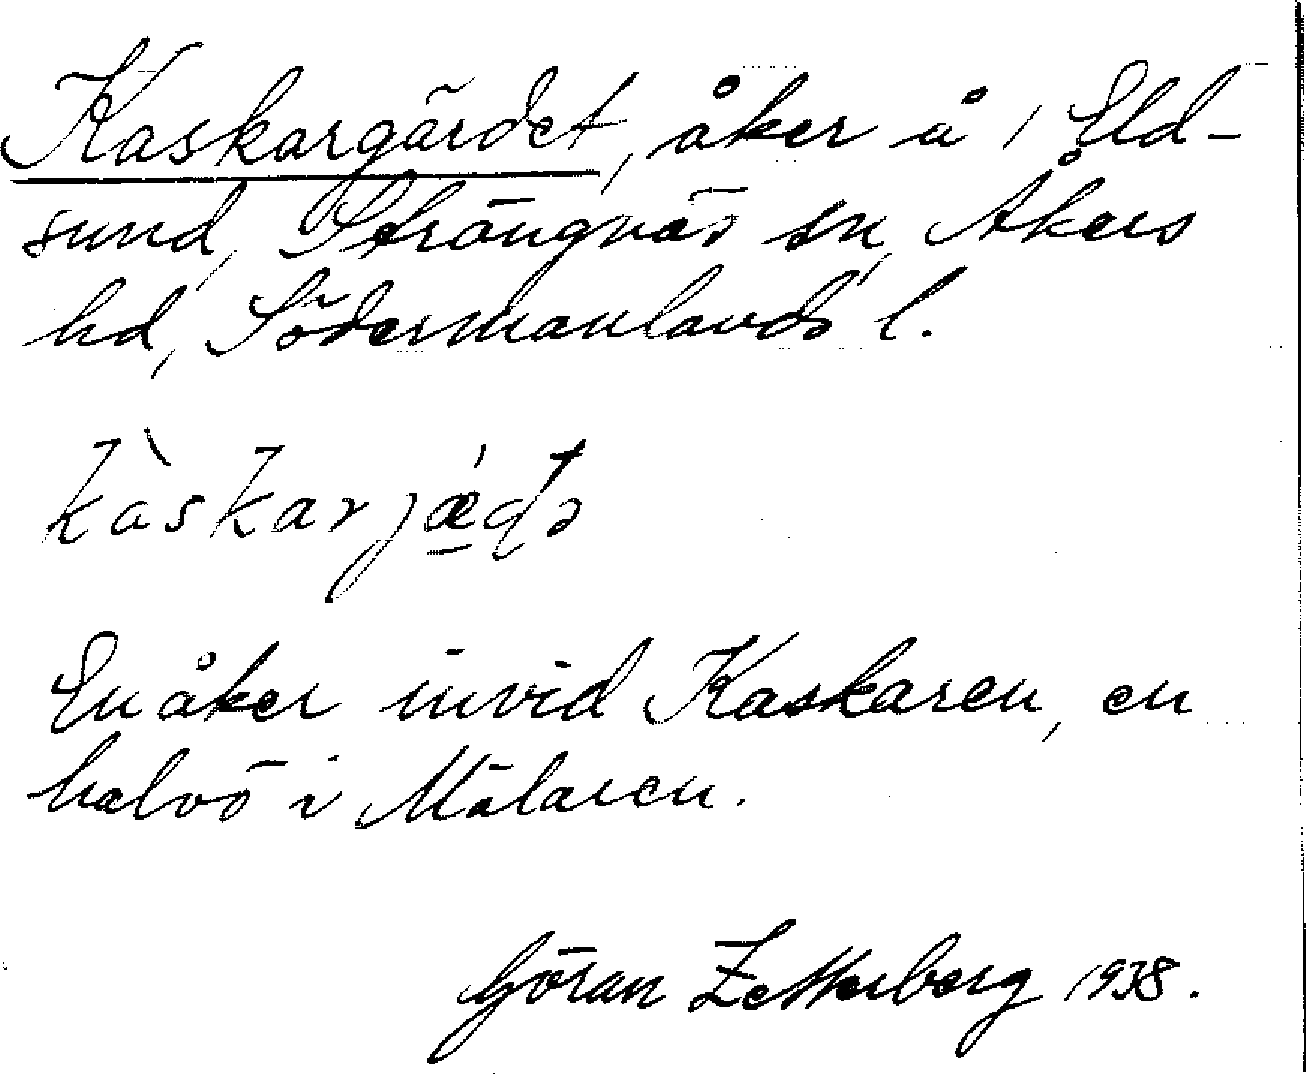 Kaskargärdet, åker å 1 Eld-
sund, Strängnäs sn, Åkers
hd, Södermanlands l.
En åker invid Kaskaren, en
halvö i Mälaren.
Göran Zetterberg 1938.